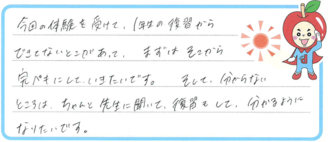 今回の体験を受けて、1年生の復習から
できてないとこがあって、まずはそこから
完ペキにしていきたいです。そして、分からない
ところは、ちゃんと先生に聞いて、復習もして、分かるように
なりたいです。